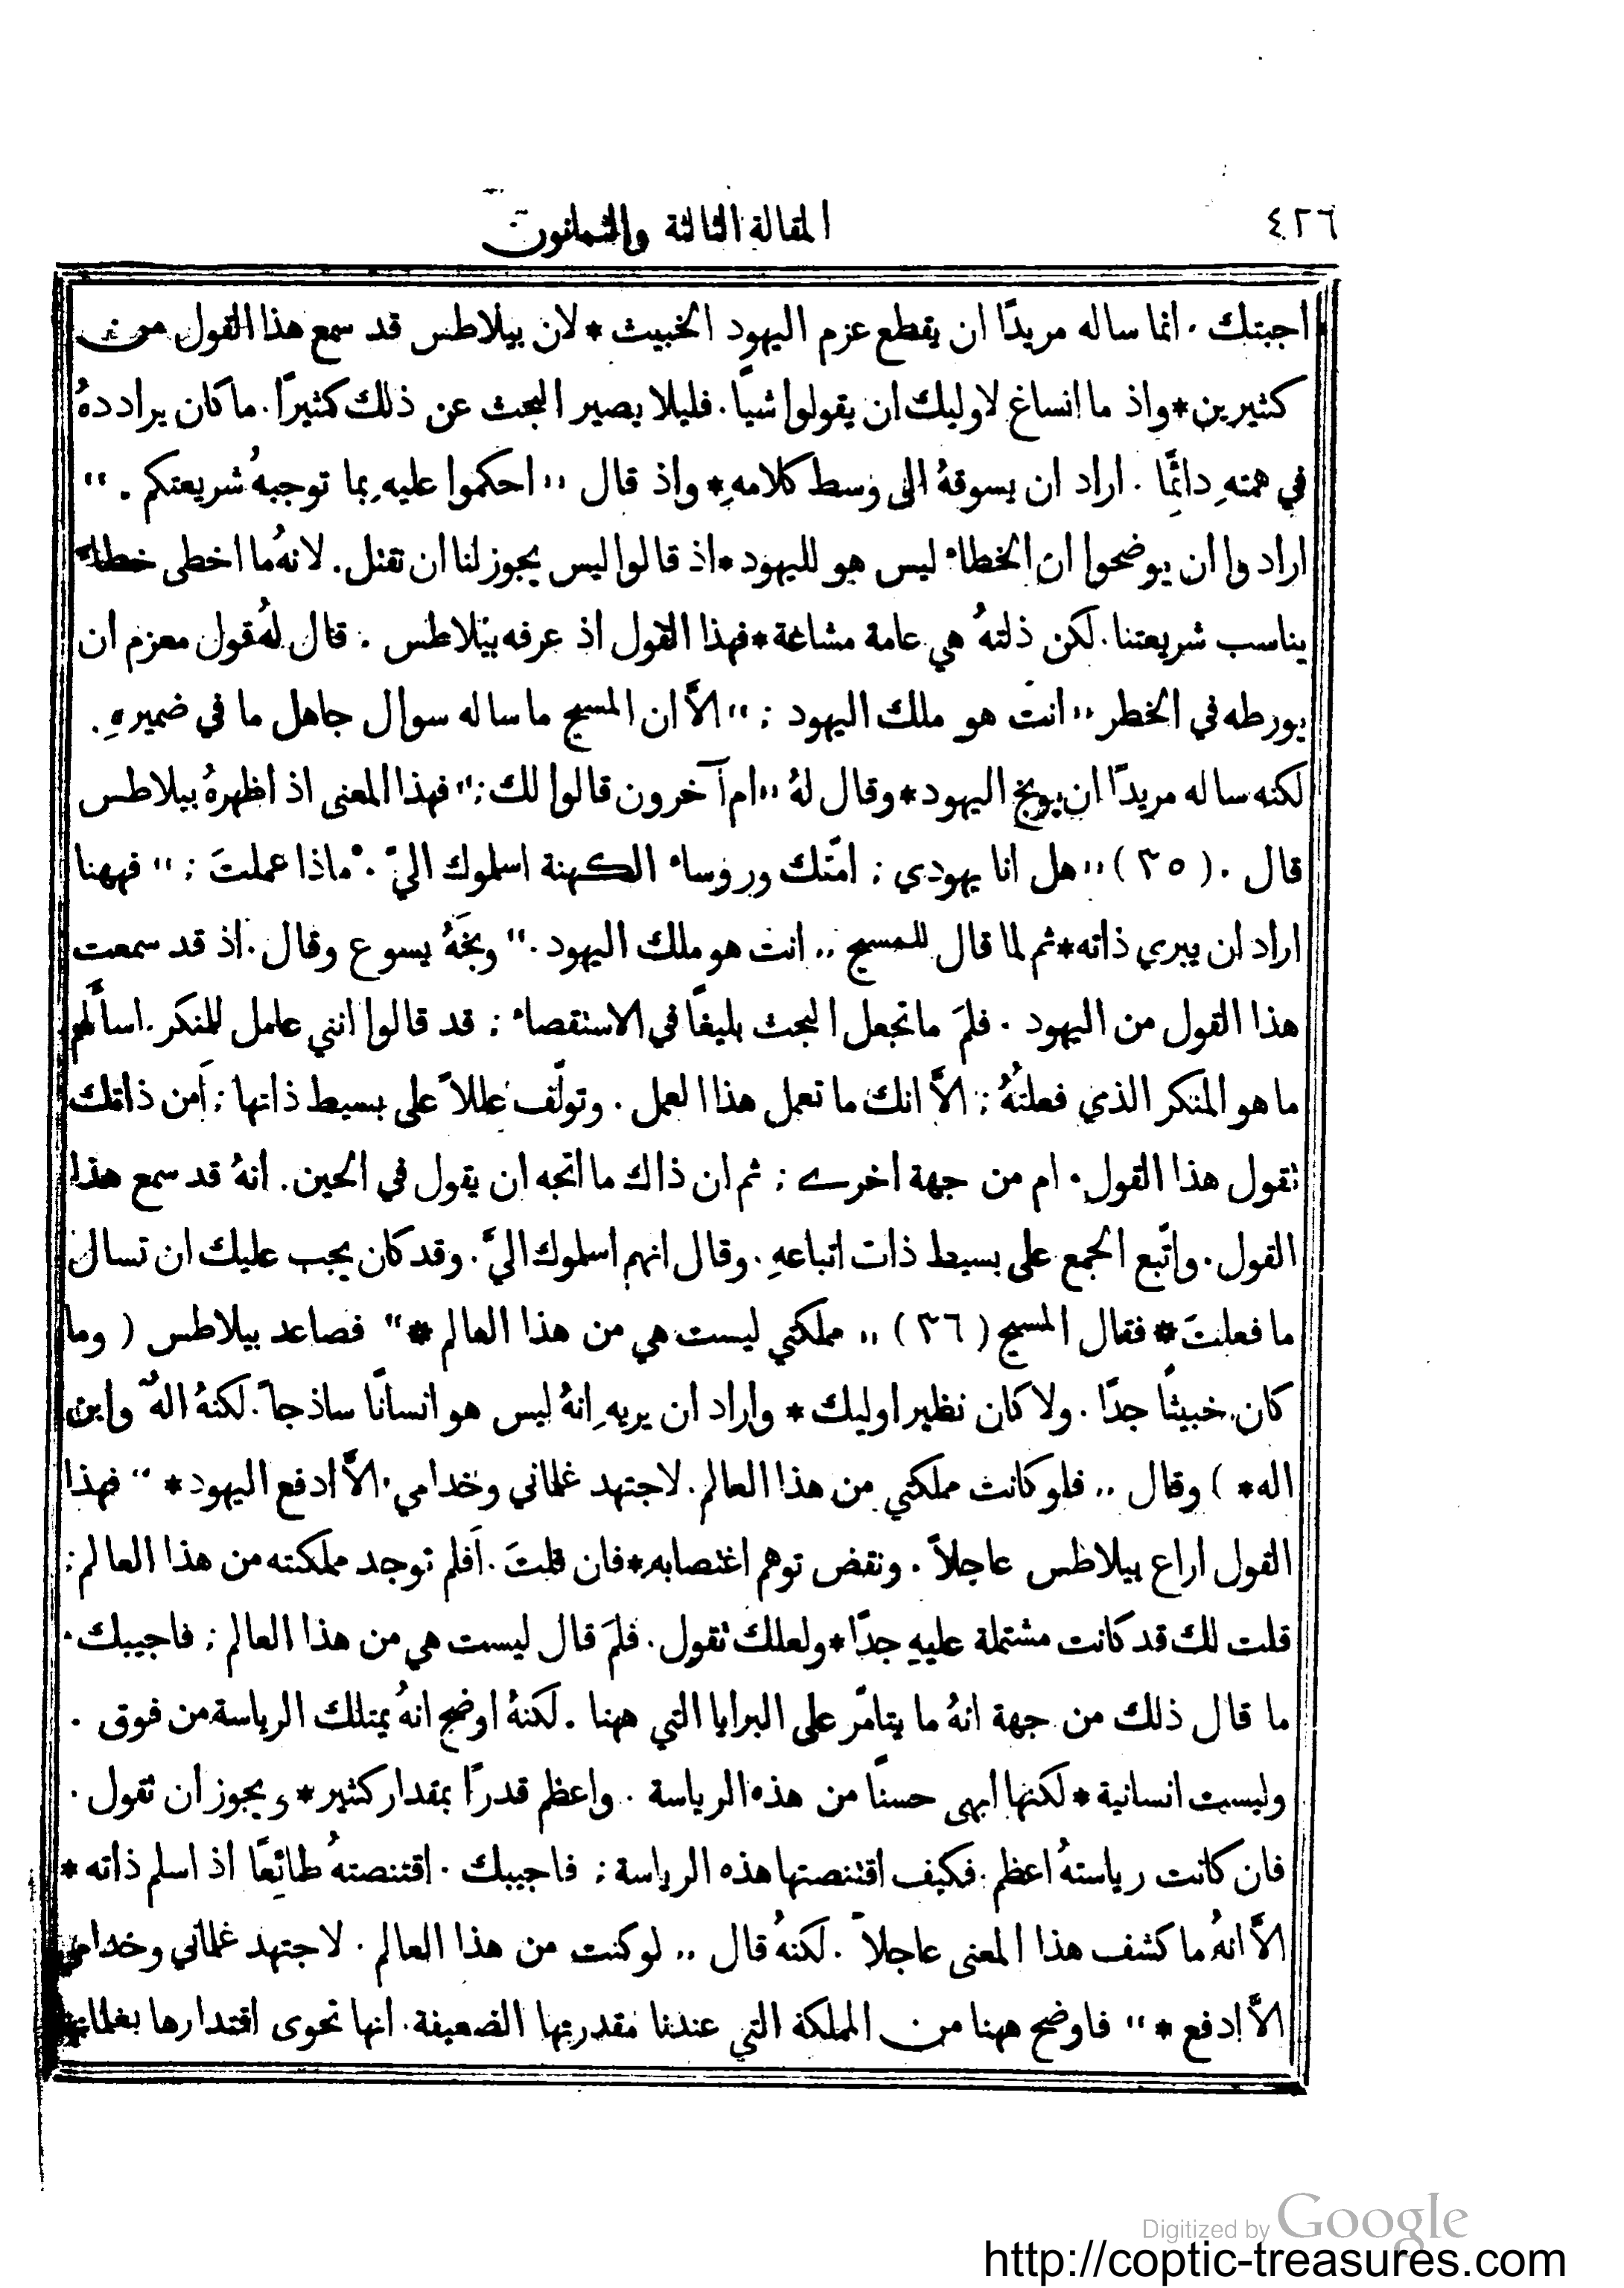 ٤٢٦ المقالة الثالثة والثمانون
اجبتك ٠ انما ساله مريدًا ان يقطع عزم اليهود الخبيث * لان بيلاطس قد سمع هذا القول من
كثيرين * واذ ما انساغ لاوليك ان يقولوا شيًا . فليلا يصير البحث عن ذلك كثيرًا . ما كان يراددهُ
في همتهِ دائمًا . اراد ان يسوقهُ الى وسط كلامهِ * واذ قال ,, احكموا عليهِ بما توجبهُ شريعتكم . ״
اراد وا ان يوضحوا ان الخطاء ليس هو لليهود * اذ قالوا ليس يجوز لنا ان نقتل . لانهُ ما اخطى خطاء
يناسب شريعتنا . لكن ذلتهُ هي عامة مشاغة * فهذا القول اذ عرفه بيلاطس . قال لهُ قول معزم ان
يورطه في الخطر ,, انت هو ملك اليهود ; ״ الَّا ان المسيح ما ساله سوال جاهل ما في ضميرهِ .
لكنه ساله مريدًا ان يوبخ اليهود * وقال لهُ ,, ام آخرون قالوا لك ; ״ فهذا المعنى اذ اظهرهُ بيلاطس
قال . ( ٣٥ ) ,, هل انا يهودي ; امّتك وروساء الكهنة اسلموك اليّ . ماذا عملتَ ; ״ فههنا
اراد ان يبري ذاته * ثم لما قال للمسيح ,, انت هو ملك اليهود . ״ وبخَهُ يسوع وقال . اذ قد سمعت
هذا القول من اليهود . فلمَ ما تجعل البحث بليغًا في الاستقصاء ; قد قالوا انني عامل للمنكر . اسألهم
ما هو المنكر الذي فعلتُهُ ; الَّا انك ما تعمل هذا العمل . وتولّف عللاً على بسيط ذاتها ; اَمن ذاتك
نقول هذا القول . ام من جهة اخرى ; ثم ان ذاك ما اتجه ان يقول في الحين . انهُ قد سمع هذا
القول . واتّبع الجمع على بسيط ذات اتباعهِ . وقال انهم اسلموك اليَّ . وقد كان يجب عليك ان تسال
ما فعلتَ * فقال المسيح ( ٣٦ ) ,, مملكتي ليست هي من هذا العالم * ״ فصاعد بيلاطس ( وما
كان خبيثًا جدًا . ولا كان نظير اوليك * واراد ان يريهِ انهُ ليس هو انسانًا ساذجاً . لكنهُ الهٌ وابن
اله * ) وقال ,, فلو كانت مملكتي من هذا العالم . لاجتهد غلماني وخدامي الَّا ادفع اليهود * ״ فهذا
القول اراع بيلاطس عاجلاً . ونقض توهم اغتصابهِ * فان قلتَ . اَفلم توجد مملكته من هذا العالم ;
قلت لك قد كانت مشتملة عليهِ جدًا * ولعلك نقول . فلمَ قال ليست هي من هذا العالم ; فاجيبك .
ما قال ذلك من جهة انهُ ما يتامّر على البرايا التي ههنا . لكنهُ اوضح انهُ يمتلك الرياسة من فوق .
وليست انسانية * لكنها ابهى حسنًا من هذه الرياسة . واعظم قدرًا بمقدار كثير * ويجوز ان نقول .
فان كانت رياستهُ اعظم . فكيف اقتنصتها هذه الرياسة ; فاجيبك . اقتنصتهُ طائِعًا اذ اسلم ذاته *
الَّا انهُ ما كشف هذا المعنى عاجلاً . لكنهُ قال ,, لو كنت من هذا العالم . لاجتهد غلماني وخدامي
الَّا ادفع * ״ فاوضح ههنا من المملكة التي عندنا مقدرتها الضعيفة . انها تحوى اقتدارها بغلمانها
Digitized by Google
http://coptic-treasures.com